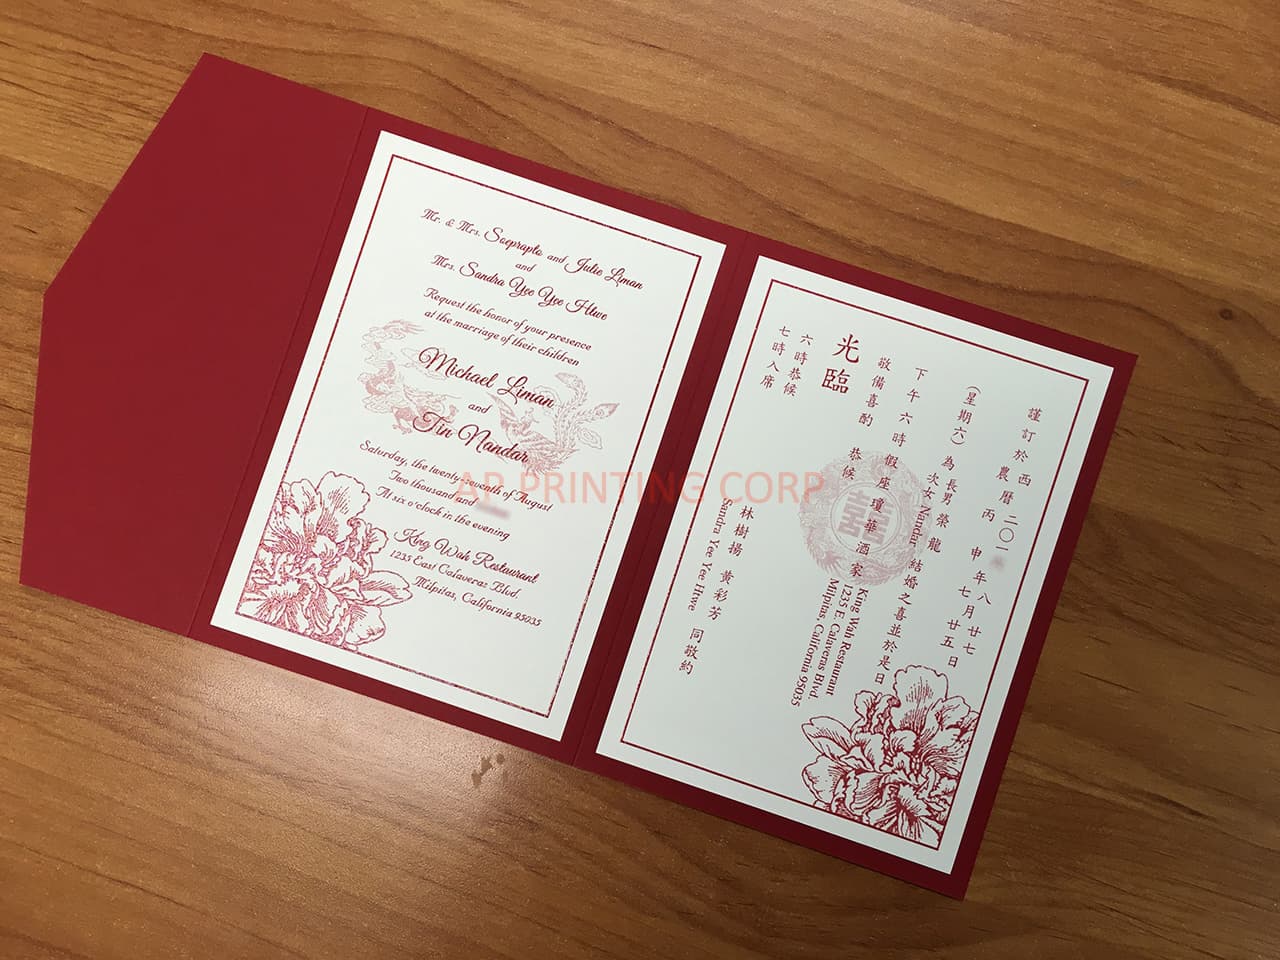 Mr. & Mrs. Soeprapto and Julie Liman
and
Mrs. Sandra Yee Yee Htwe
Request the honor of your presence
at the marriage of their children
Michael Liman
and
Tin Nandar
Saturday, the twenty-seventh of August
Two thousand and
At six o'clock in the evening
King Wah Restaurant
1235 East Calaveras Blvd.
Milpitas, California 95035
謹訂於西二〇一年八月廿七日
農曆丙申七月廿五
(星期六)為長男榮龍
次女Nandar結婚之喜並於是日
下午六時假座瓊華酒家King Wah Restaurant
1235 E. Calaveras Blvd.
Milpitas, California 95035
敬備喜酌 恭候
光臨
林樹揚 黃彩芳
Sandra Yee Yee Htwe 同敬約
六時恭候
七時入席
囍
AP PRINTING CORP